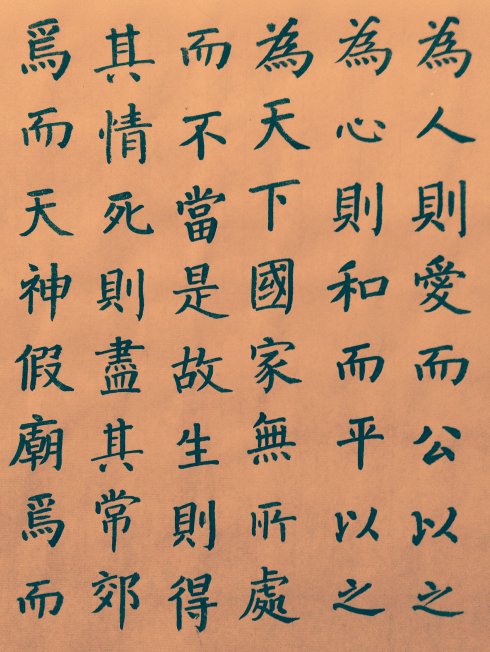 為人則愛而公以之
為心則和而平以之
為天下國家無所處
而不當是故生則得
其情死則盡其常郊
焉而天神假廟焉而